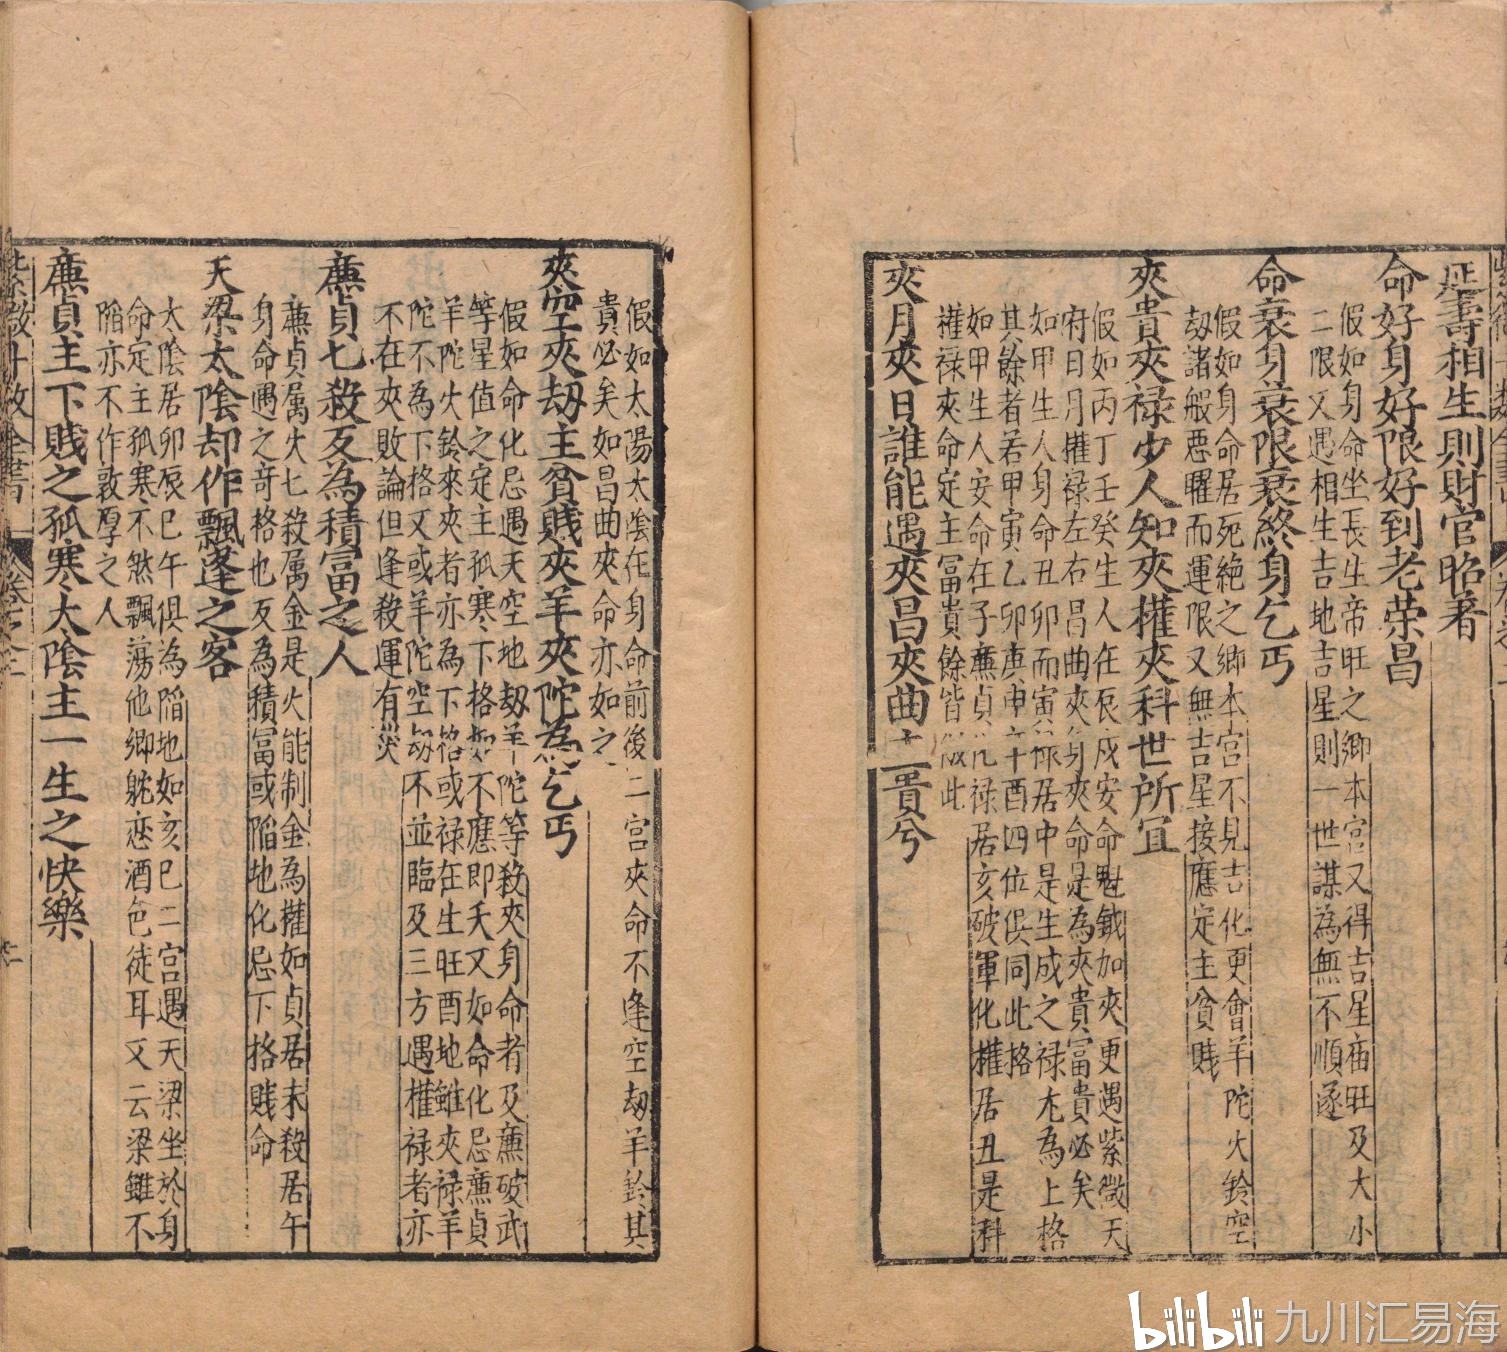 延壽相生則財官昭著
命好身好限好到老荣昌
假如身命坐長生帝旺之鄉本宮又得吉星庙旺及大小
二限又遇相生吉地吉星則一世謀為無不順遂
命衰身衰限衰終身乞丐
假如身命居死絕之鄉本宮不見吉化更會羊陀火鈴空
劫諸般惡曜而運限又無吉星接應定主貧賤
夾貴夾禄少人知夾權夾科世所宜
假如丙丁壬癸生人在辰戌安命魁鉞加夾更遇紫微天
府日月權禄左右昌曲夾身夾命是為夾貴富貴必矣
如甲生人身命丑卯而寅禄居中是生成之禄尤為上格
其餘者若甲寅乙卯庚申辛酉四位俱同此格
如甲生人安命在子廉貞化禄居亥破軍化權居丑是科
權禄夾命定主冨貴餘皆倣此
夾月夾日誰能遇夾昌夾曲主貴兮
假如太陽太陰在身命前後二宮夾命不逢空劫羊鈴其
貴必矣如昌曲夾命亦如之
夾空夾劫主貧賤夾羊夾陀為乞丐
假如命化忌遇天空地劫羊陀等殺夾身命者及廉破武
等星值之定主孤寒下格如不應即夭又如命化忌廉貞
羊陀火鈴來夾者亦為下格或禄在生旺酉地雖夾禄羊
陀不為下格又或羊陀空劫不並臨及三方遇權禄者亦
不在夾敗論但逢殺運有災
廉貞七殺反為積富之人
廉貞属火七殺属金是火能制金為權如貞居未殺居午
身命遇之奇格也反為積冨或陷地化忌下格賤命
天梁太陰却作飄蓬之客
太陰居卯辰巳午俱為陷地如亥巳二宮遇天梁坐於身
命定主孤寒不然飄蕩他鄉躭恋酒色徒耳又云梁雖不
陷亦不作敦厚之人
廉貞主下賤之孤寒太陰主一生之快樂